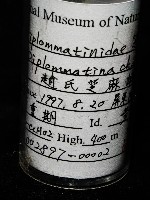 al Museum of Natu
Diplommatinidae
Diplommatina ch
趙氏芝麻
1997. 8. 20
重期 Id.
High. 400 m
002897-00002